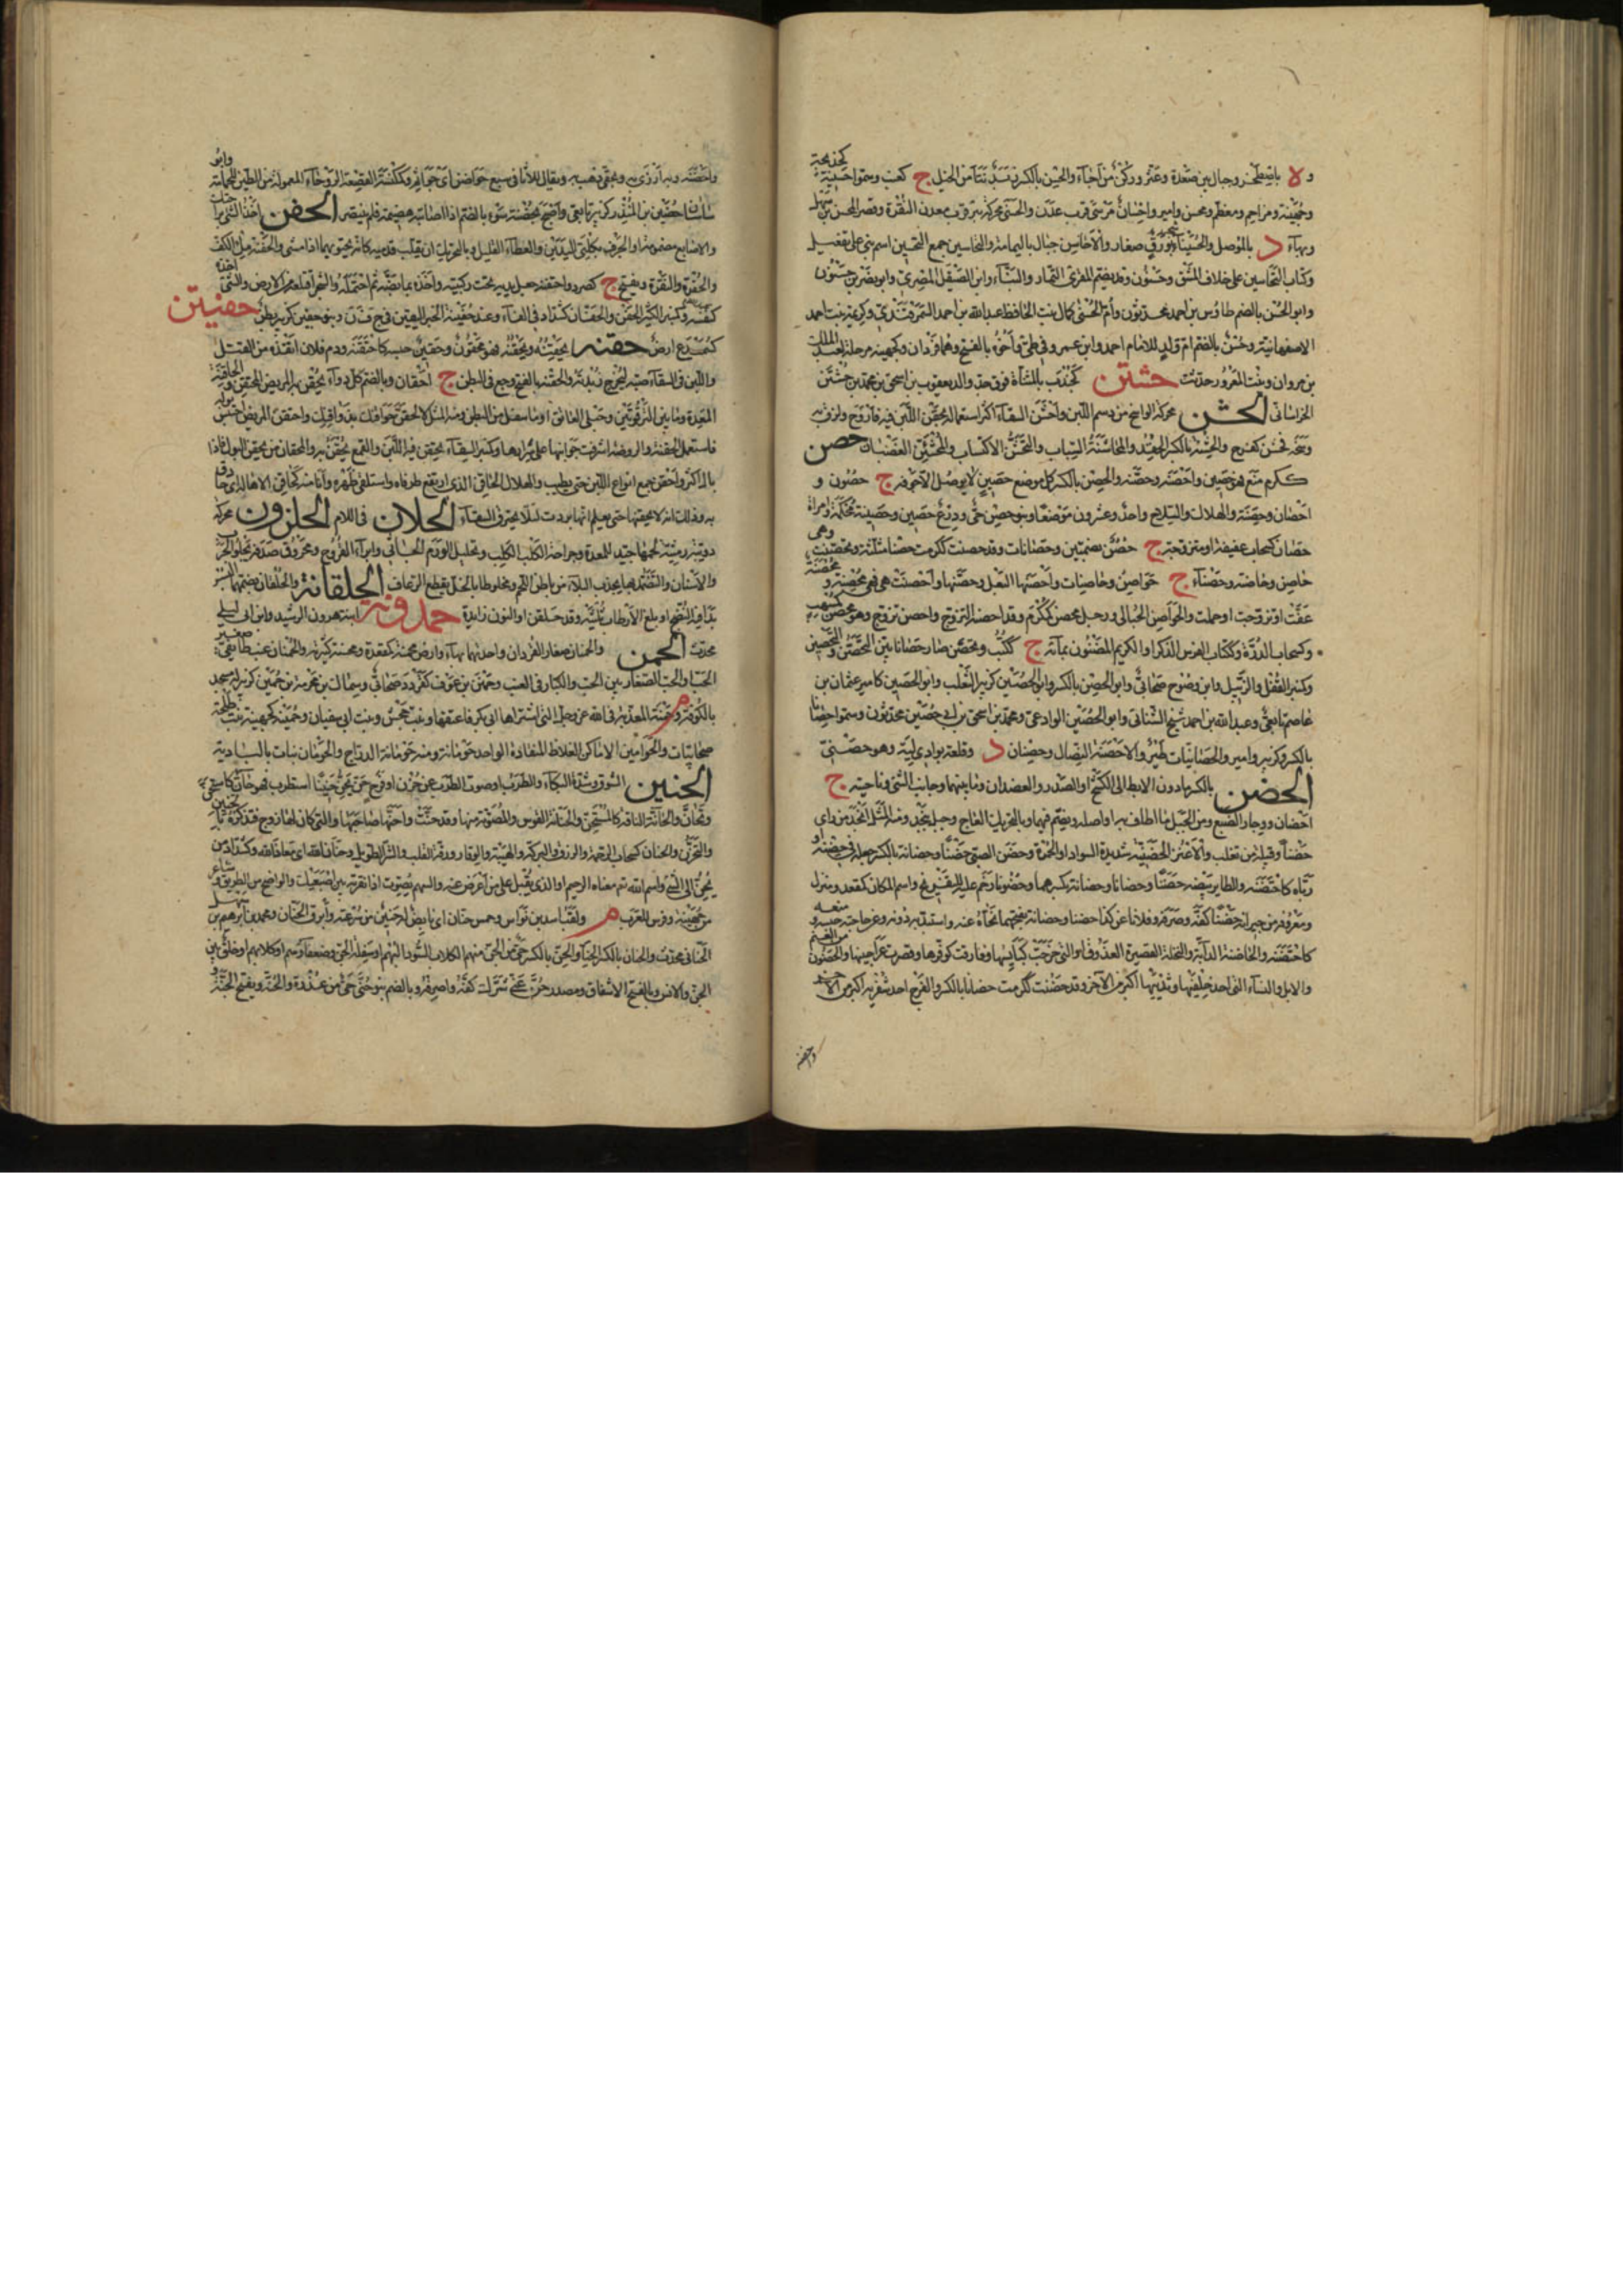 و لا باصطخر وجبال بين صعدة وعثر وركن من اجاء والحسن بالكسر ج كعنب وسموا حسينة كجهينة
وجهينة ومزاحم ومعظم ومحسن وامير واحسان مرسى قرب عدن والحسنى محركة بئر قرب معدن النقرة وقصر للحسن بن سهل
وبهاء د بالموصل والحسيناء شجر بورق صغار والاحاسن جبال باليمامة والتحاسين جمع التحسين اسم بني على تفعيل
وكتاب التحاسين خلاف المشق وحسنون وقد يضم المقرئ التمار والبناء وابن الصيقل المصري وابو نصر بن حسنون
وابو الحسن بالضم طاوس بن احمد محدثون وام الحسن كمال بنت الحافظ عبد الله بن احمد السمرقندي وكريمة بنت احمد
الاصفهانية وحسن بالضم ام ولد للامام احمد وابن عمرو في طيئ واخوه بالفتح وهما فردان وكجهينة مرحلة لعبد الملك
بن مروان وبنت المعرور حدثت حشتن كجندب بالمثناة فوق جد والد يعقوب بن اسحق بن محمد بن حشتن
الخراساني الحشن محركة الوسخ من دسم اللبن واحشن السقاء اكثر استعماله بحقن اللبن فيه فاروح ولزق به
وسخه فحشن كفرح والحشنة بالكسر الحقد والمحاشنة السباب والتحشن الاكتساب والمحشئن الغضبان حصن
ككرم منع فهو حصين واحصنه وحصنه والحصن بالكسر كل موضع حصين لا يوصل الى جوفه ج حصون و
احصان وحصنة والهلال والسلاح واحد وعشرون موضعا وبنو حصن حي ودرع حصين وحصينة محكمة وامراة
حصان كسحاب عفيفة او متزوجة ج حصن بضمتين وحصانات وقد حصنت ككرمت حصنا مثلثة وتحصنت وهي
حاصن وحاصنة وحصناء ج حواصن وحاصنات واحصنها البعل وحصنها واحصنت هي فهي محصنة و محصنة
عفت او تزوجت او حملت والحواصن الحبالى ورجل محصن كمكرم وقد احصنه التزوج واحصن تزوج وهو محصن كمسهب
وكسحاب الدرة وككتاب الفرس الذكر او الكريم المضنون بمائه ج ككتب وتحصن صار حصانا بين التحصن والتحصين
وكمنبر القفل والزبيل وابن وحوح صحابي وابو الحصن بالكسر وابو الحصين كزبير الثعلب وابو الحصين كامير عثمان بن
عاصم تابعي وعبد الله بن احمد شيخ النسائي وابو الحصين الوادعي ومحمد بن اسحق بن ابي حصين محدثون وسموا حصنا
بالكسر وكزبير وامير والحصانيات طير والاحصنة النصال وحصنان د وقلعة بوادي لية وهو حصني
الحضن بالكسر ما دون الابط الى الكشح او الصدر والعضدان وما بينهما وجانب الشئ وناحيته ج
احضان ووجار الضبع ومن الجبل ما اطاف به او اصله ويضم فيهما وبالتحريك العاج وجبل بنجد ومنه المثل انجد من راى
حضنا وقبيلة من تغلب والاعنز الحضنية شديدة السواد او الحمرة وحضن الصبي حضنا وحضانة بالكسر جعله في حضنه او
رباه كاحتضنه والطاير بيضه حضنا وحضانا وحضانة بكسرهما وحضونا رخم عليه للتفريخ واسم المكان كمقعد ومنزل
ومعروفه من جيرانه حضنا كفه وصرفه وفلانا عن كذا حضنا وحضانة بفتحهما نحاه عنه واستبد به دونه وعن حاجته حبسه و منعه
كاحتضنه والحاضنة الداية والنخلة القصيرة العذوق او التي خرجت كبائسها وفارقت كوافيرها وقصرت عراجينها والحضون من الغنم
والابل والنساء التي احد خلفيها وثدييها اكبر من الاخر وقد حضنت ككرمت حضانا بالكسر والفرج احد شفريه اكبر من الاخر
واحضنه
واحضنه وبه ازرى به وبحقي ذهب به ويقال للاثافي سفع حواضن اي جواثم وكمكنسة القصعة الروحاء المعمولة من الطين للحمامة وابو
ساسان حضين بن المنذر كزبير تابعي واصبح بحضنة سوء بالضم اذا اصابته هضيمة فلم ينتصر الحفن اخذك الشئ براحتك
والاصابع مضمومة او الجرف بكلتي اليدين والعطاء القليل وبالتحريك ان يقلب قدميه كانه يحثو بهما اذا مشى والحفنة ملء الكف
والحفرة والنقرة ويفتح ج كصرد واحتفنه جعل يديه تحت ركبتيه واخذه بمابضه ثم احتمله والشجر اقتلعه من الارض والشئ اخذه
كنفسه وكمنبر الكثير الحفن والحفان كشداد في الفاء وعند حفينة الخبر اليقين في ج ف ن وبنو حفين كزبير بطن حفيتن
كسميدع ارض حقنه يحقنه ويحقنه فهو محقون وحقين حبسه كاحتقنه ودم فلان انقذه من القتل
واللبن في السقاء صبه ليخرج زبدته والحقنة بالفتح وجع في البطن ج احقان وبالضم كل دواء يحقن به المريض المحتقن والحاقنة
المعدة وما بين الترقوتين وحبلي العاتق او ما سفل من البطن ومنه المثل لالحقن حواقنك بذواقنك واحتقن المريض احتبس بوله
فاستعمل الحقنة والروضة اشرفت جوانبها على سرارها وكمنبر السقاء يحقن فيه اللبن والقمع يحقن به والمحقان من يحقن البول فاذا
بال اكثر واحقن جمع انواع اللبن حتى يطيب والهلال الحاقن الذي ارتفع طرفاه واستلقى ظهره وانا منه كحاقن الاهالة اي حاذق
به وذلك انه لا يحقنها حتى يعلم انها بردت لئلا يحترق السقاء الحلان في اللام الحلزون محركة
دويبة رمثية لحمها جيد للمعدة وجراحة الكلب الكلب وتحليل الورم الجاسي وابراء القروح ومحروق صدفه يجلو الجرب
والاسنان والتضمد بها يجذب السلاء من باطن اللحم ومخلوطا بالخل يقطع الرعاف الحلقانة والحلقان بضمهما البسر
بدا فيه النضج او بلغ الارطاب ثلثيه وقد حلقن او النون زايدة حمدونة ابنة هرون الرشيد وابن ابي ليلى
محدث الحمن والحمنان صغار القردان واحدتهما بهاء وارض محمنة كمقعدة ومحسنة كثيرته والحمنان عنب طائفي صغير
الحب او الحب الصغار بين الحب والكبار في العنب وحمنن بن عوف كقردد صحابي وسماك بن مخرمة بن حمين كزبير له مسجد
بالكوفة م وحمنة المعذبة في الله عز وجل التي اشتراها ابو بكر فاعتقها وبنت جحش وبنت ابي سفيان وحمينة كجهينة بنت طلحة
صحابيات والحوامين الاماكن الغلاظ المنقادة الواحد حومانة ومنه حومانة الدراج والحومان نبات بالبادية
الحنين الشوق وشدة البكاء والطرب او صوت الطرب عن حزن او فرح حن يحن حنينا استطرب فهو حان كاستحن
وتحان والحانة الناقة كالمستحن والحنانة القوس او المصوتة منها وقد حنت واحنها صاحبها والتي كان لها زوج فتذكره بالحنين
والتحزن والحنان كسحاب الرحمة والرزق والبركة والهيبة والوقار ورقة القلب والشر الطويل وحنان الله اي معاذ الله وكشداد من
يحن الى الشئ واسم الله تع معناه الرحيم او الذي يقبل على من اعرض عنه والسهم يصوت اذا نقرته بين اصبعيك والواضح من الطريق وشاعر
من جهينة وفرس للعرب م ولقب اسد بن نواس وخمس حنان اي بايص له حنين من سرعته وابرق الحنان ومحمد بن ابرهيم بن سهل
الحناني محدث والحنان بالكسر الحناء والحن بالكسر حي من الجن منهم الكلاب السود البهم او سفلة الجن وضعفاؤهم او كلابهم او خلق بين
الجن والانس وبالفتح الاشفاق ومصدر حن عني شرك كفه واصرفه وبالضم بنو حن حي من عذرة والحنة ويفتح الجنة و